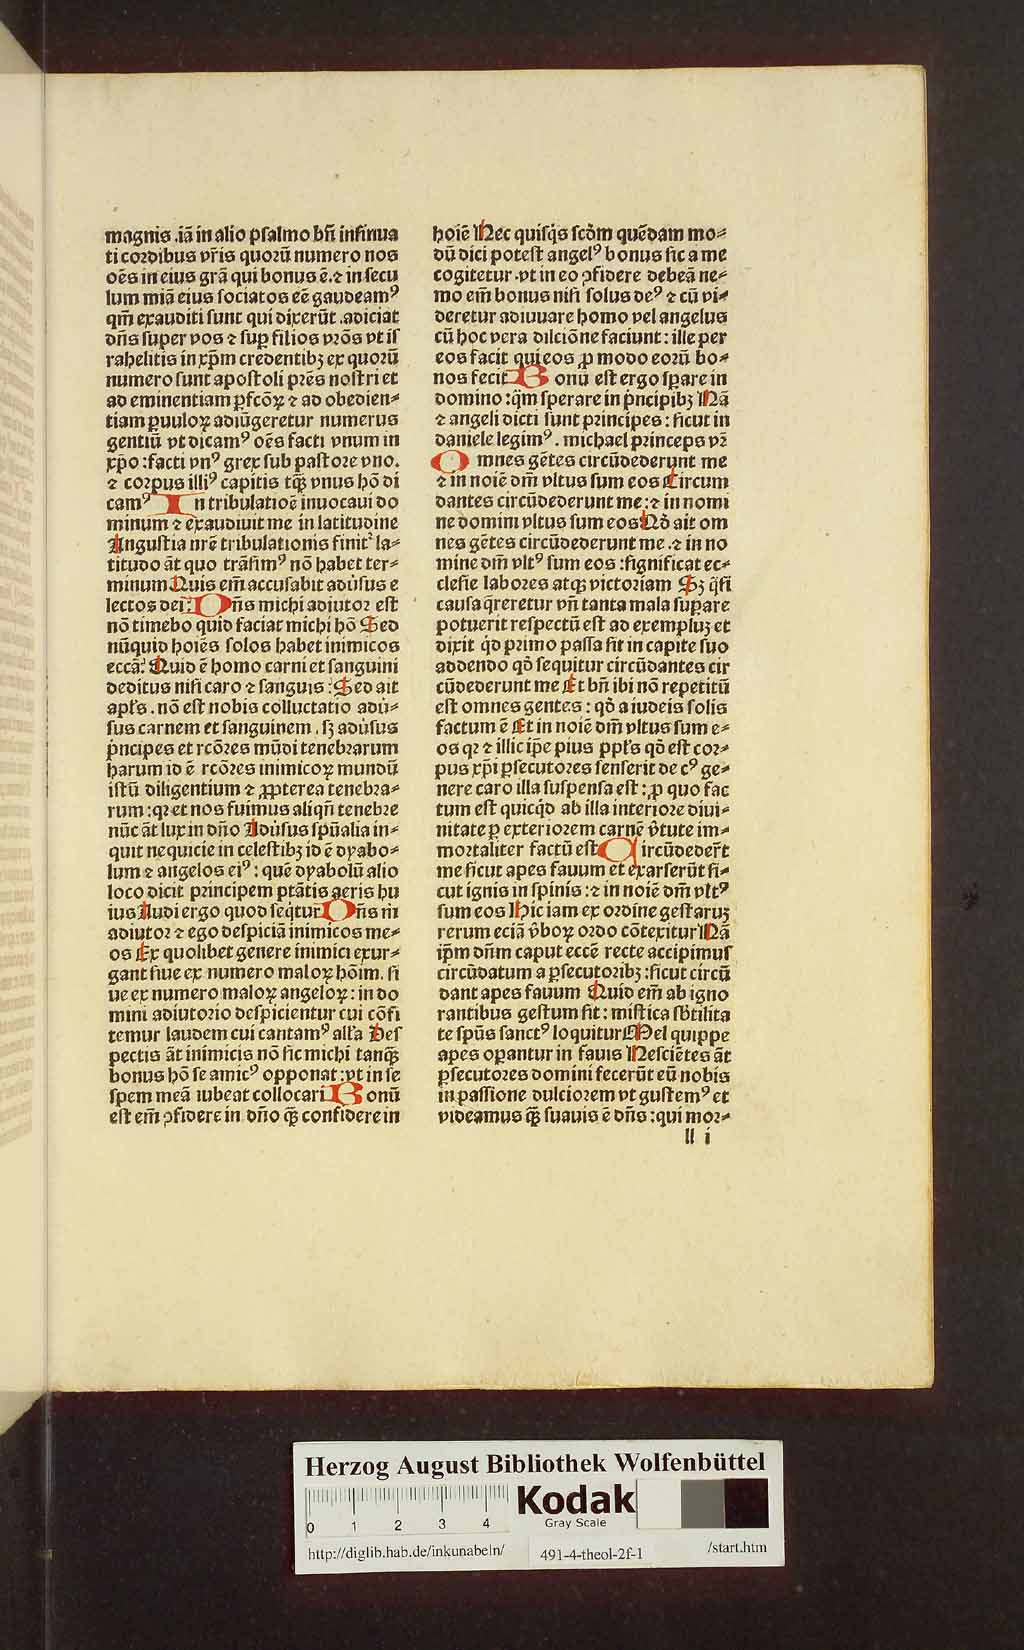 magnis .iā in alio psalmo bn̄ insinua
ti cordibus vr̄is quorū numero nos
oēs in eius grā qui bonus ē. ⁊ in secu
lum miā eius sociatos eē gaudeamꝰ
qm̄ exauditi sunt qui dixerūt .adiciat
dn̄s super vos ⁊ suꝑ filios vr̄os vt is
rahelitis in xp̄m credentibꝫ ex quorū
numero sunt apostoli pr̄es nostri et
ad eminentiam ꝑfcōꝝ ⁊ ad obedien⸗
tiam ꝑuuloꝝ adiūgeretur numerus
gentiū vt dicamꝰ oēs facti vnum in
xp̄o :facti vnꝰ grex sub pastore vno.
⁊ corpus illiꝰ capitis tqȝ̄ vnus hō di
camꝰ In tribulatioē inuocaui do
minum ⁊ exaudiuit me in latitudine
Angustia nr̄e tribulationis finit᷑ la⸗
titudo āt quo trāsimꝰ nō habet ter⸗
minum Quis em̄ accusabit adūsus e
lectos dei: Dn̄s michi adiutor est
nō timebo quid faciat michi hō Sed
nūquid hoiēs solos habet inimicos
eccā: Quid ē homo carni et sanguini
deditus nisi caro ⁊ sanguis : Sed ait
apl̄s . nō est nobis colluctatio adū⸗
sus carnem et sanguinem . sȝ adūsus
p̄ncipes et rcōres mūdi tenebrarum
harum id ē rcōres inimicoꝝ mundū
istū diligentium ⁊ ꝓpterea tenebra⸗
rum :qꝛ et nos fuimus aliqn̄ tenebre
nūc āt lux in dn̄o Adūsus spūalia in⸗
quit nequicie in celestibꝫ id ē dyabo⸗
lum ⁊ angelos eiꝰ : quē dyabolū alio
loco dicit principem ptātis aeris hu
ius Audi ergo quod seq̄tur Dn̄s m̄
adiutor ⁊ ego despiciā inimicos me⸗
os Ex quolibet genere inimici exur⸗
gant siue ex numero maloꝝ hōim. si
ue ex numero maloꝝ angeloꝝ : in do
mini adiutorio despicientur cui cōfi
temur laudem cui cantamꝰ all'a Des
pectis āt inimicis nō sic michi tanqȝ̄
bonus hō se amicꝰ opponat :vt in se
spem meā iubeat collocari Bonū
est em̄ ꝯfidere in dn̄o qȝ̄ confidere in
hoiē Nec quisq̄s scd̄m quēdam mo⸗
dū dici potest angelꝰ bonus sic a me
cogitetur .vt in eo ꝯfidere debeā ne⸗
mo em̄ bonus nisi solus deꝰ ⁊ cū vi⸗
deretur adiuuare homo vel angelus
cū hoc vera dilciōne faciunt : ille per
eos facit qui eos ꝓ modo eorū bo⸗
nos fecit Bonū est ergo sꝑare in
domino :q̄m sperare in p̄ncipibꝫ Nā
⁊ angeli dicti sunt principes : sicut in
daniele legimꝰ . michael princeps vr̄
Omnes gētes circūdederunt me
⁊ in noiē dm̄ vltus sum eos Circum
dantes circūdederunt me : ⁊ in nomi
ne domini vltus sum eos Nō ait om
nes gētes circūdederunt me .⁊ in no
mine dm̄ vltꝰ sum eos :significat ec⸗
clesie labores atqꝫ victoriam Sȝ q̄si
causa q̄reretur vn̄ tanta mala suꝑare
potuerit respectū est ad exempluȝ et
dixit q̄d primo passa sit in capite suo
addendo qd̄ sequitur circūdantes cir
cūdederunt me Et bn̄ ibi nō repetitū
est omnes gentes : qd̄ a iudeis solis
factum ē Et in noiē dm̄ vltus sum e⸗
os qꝛ ⁊ illic ip̄e pius ppl̄s qd̄ est cor⸗
pus xp̄i ꝑsecutores senserit de cꝰ ge⸗
nere caro illa suspensa est : ꝓ quo fac
tum est quicq̄d ab illa interiore diui⸗
nitate ꝑ exteriorem carnē v̄tute im⸗
mortaliter factū est Circūdeder̄t
me sicut apes fauum et exarserūt si⸗
cut ignis in spinis : ⁊ in noiē dm̄ vltꝰ
sum eos Hic iam ex ordine gestaruȝ
rerum eciā v̄boꝝ ordo cōtexitur Nā
ip̄m dn̄m caput eccē recte accipimus
circūdatum a ꝑsecutoribꝫ :sicut circū
dant apes fauum Quid em̄ ab igno
rantibus gestum sit : mistica sb̄tilita
te spūs sanctꝰ loquitur Mel quippe
apes oꝑantur in fauis Nesciētes āt
ꝑsecutores domini fecerūt eū nobis
in passione dulciorem vt gustemꝰ et
videamus qȝ̄ suauis ē dn̄s : qui mor⸗
ll i
Herzog August Bibliothek Wolfenbüttel
0 1 2 3 4
Kodak
Gray Scale
http://diglib.hab.de/inkunabeln/ 491-4-theol-2f-1 /start.htm